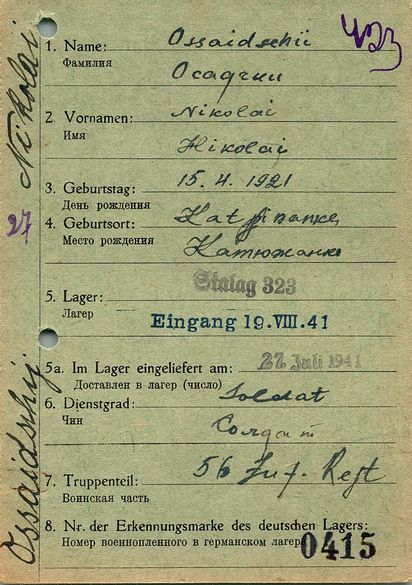 423
1. Name: Ossaidschii
Фамилия
Осадчии
2. Vornamen: Nikolai
Имя
Николаi
3. Geburtstag: 15. 4. 1921
День рождения
4. Geburtsort:
Место рождения Катюжанке
Stalag 323
5. Lager:
Лагер
Eingang 19.VIII.41
5a. Im Lager eingeliefert am: 27. Juli 1941
Доставлен в лагер (число)
6. Dienstgrad: Soldat
Чин
Солдат
7. Truppenteil: 56 Inf. Regt
Воинская часть
8. Nr. der Erkennungsmarke des deutschen Lagers:
Номер военнопленного в германском лагер 0415
Ossaidschij Nikolai
27